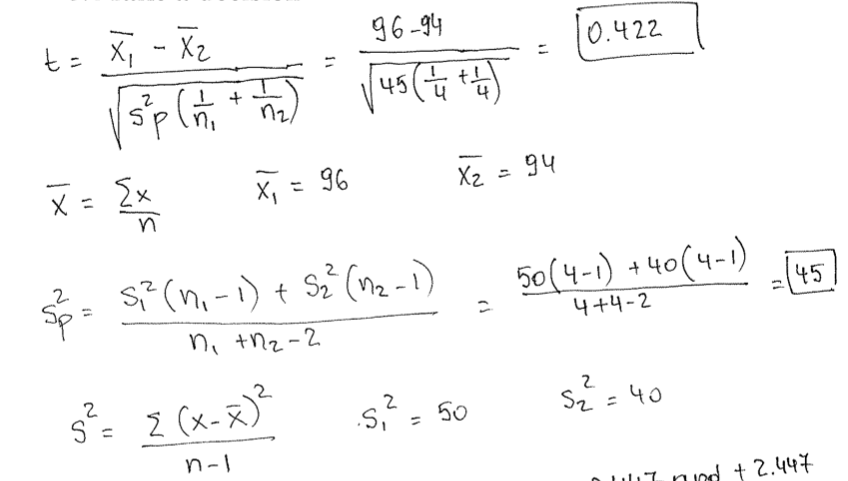 t = (x̄₁ - x̄₂) / √(s²p (1/n₁ + 1/n₂)) = (96-94) / √(45(1/4 + 1/4)) = 0.422
x̄ = Σx / n x̄₁ = 96 x̄₂ = 94
s²p = (s₁²(n₁-1) + s₂²(n₂-1)) / (n₁+n₂-2) = (50(4-1) + 40(4-1)) / (4+4-2) = 45
s² = Σ(x-x̄)² / (n-1) s₁² = 50 s₂² = 40
+ 2.447